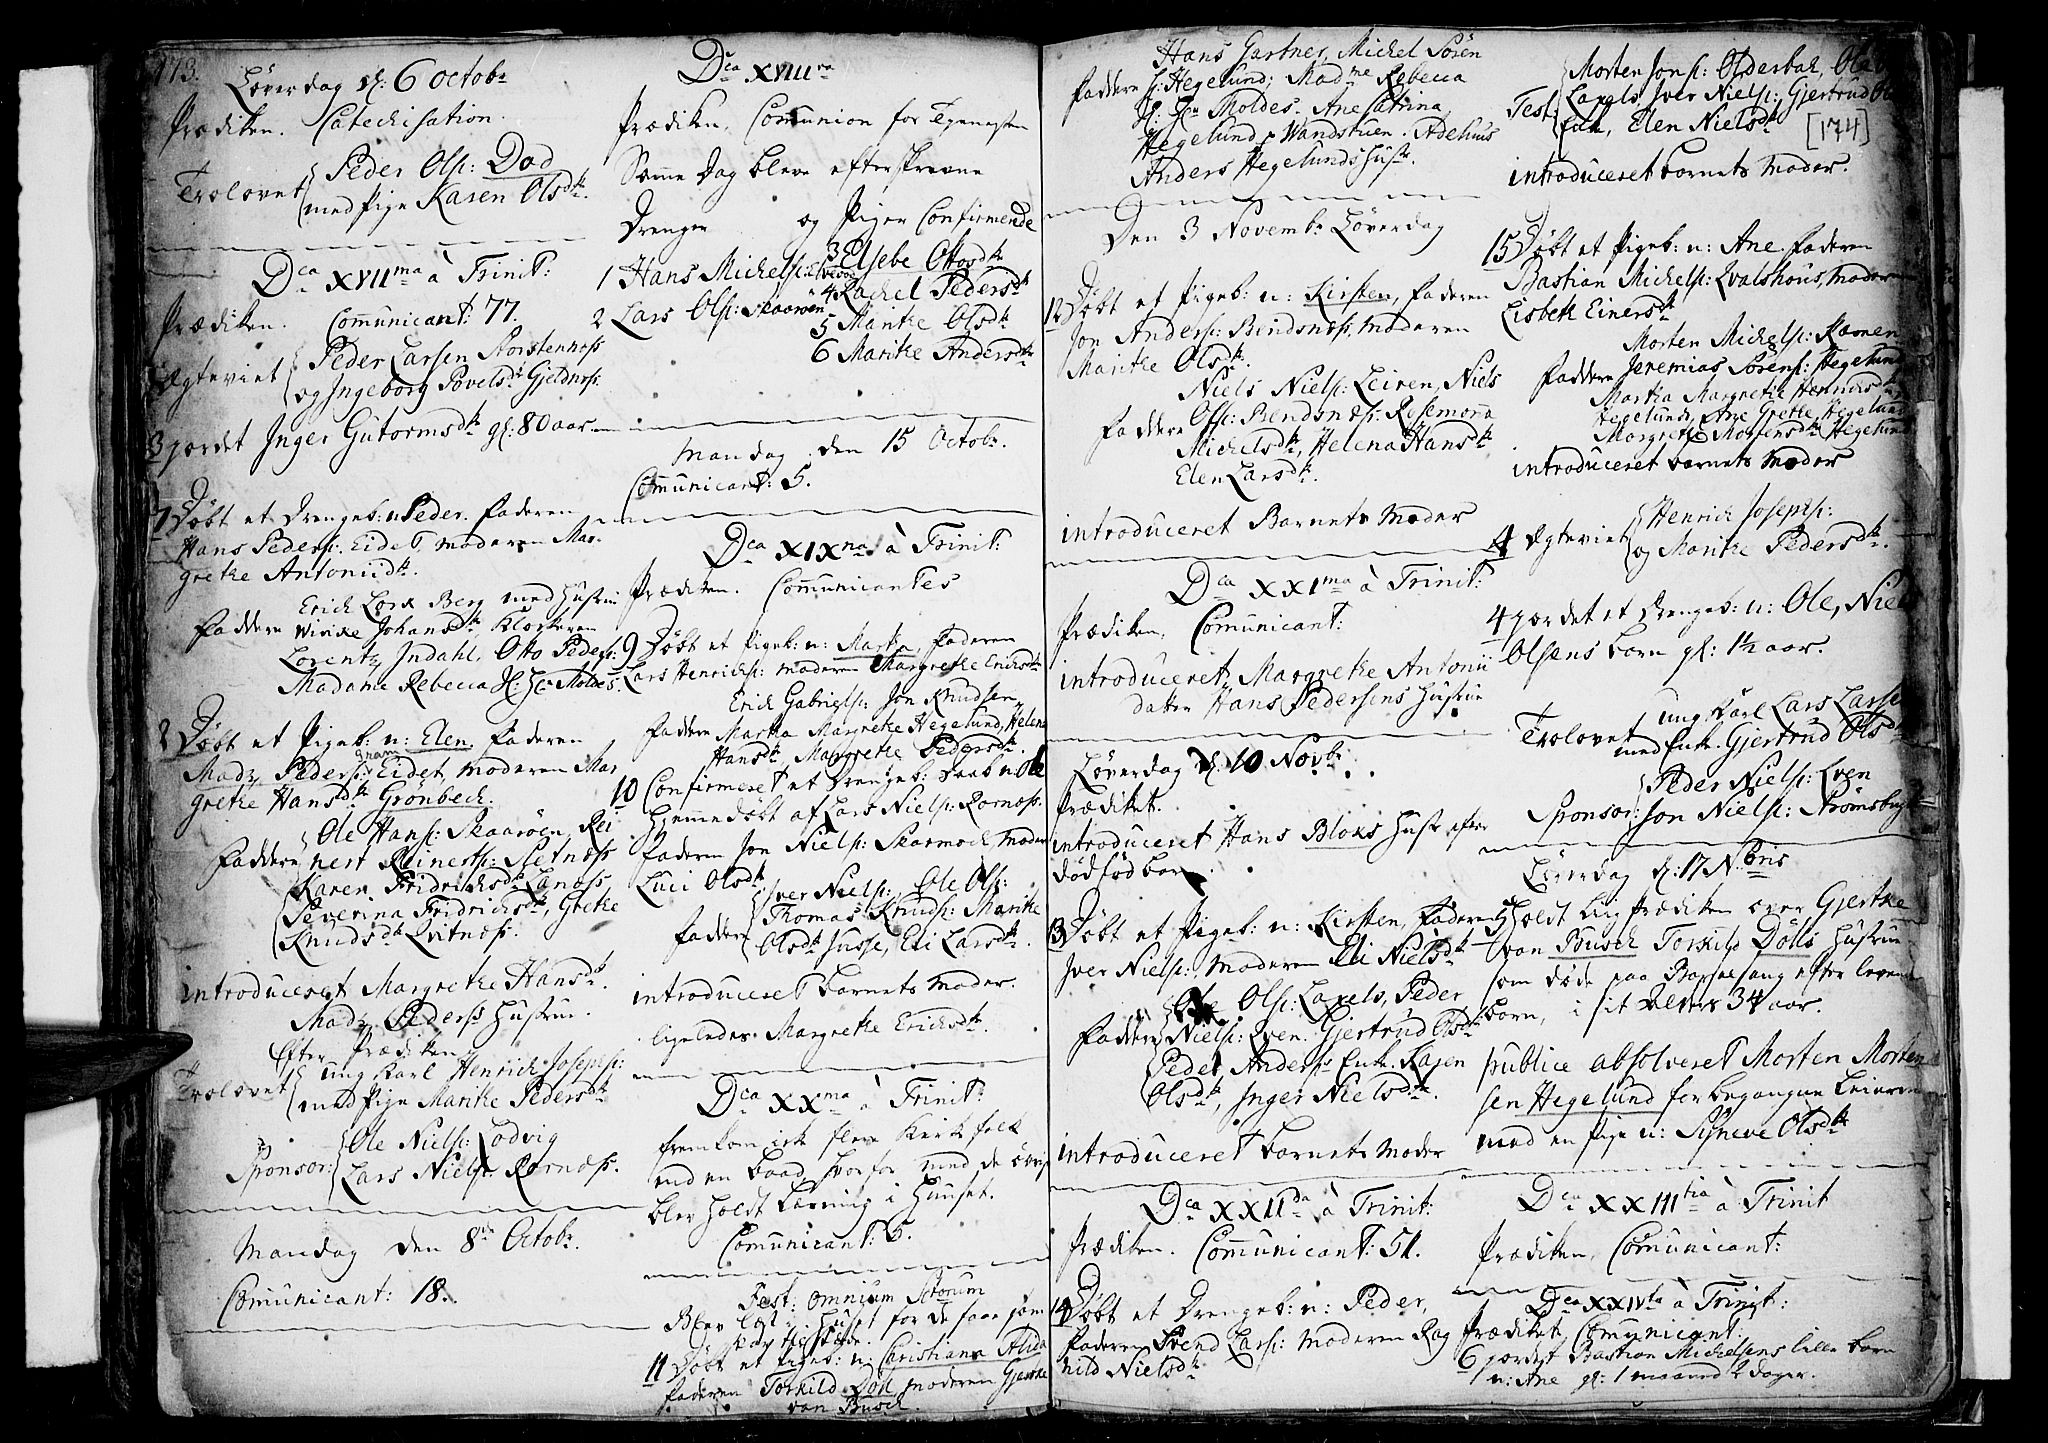 173.
Løverdag d: 6 octobr
Prædiken. Catechisation.
Trolovet Peder Ols: Dod
med Pige Karen Olsdtr.
Dca XVIIma à Trinit:
Prædiken. Comunicant: 77.
Ægteviet Peder Larsen Storstennoss
og Ingeborg Povelsdtr Gieldnoss.
3 jordet Inger Gutormsdtr gl: 80 aar.
7 Døbt et Drengeb: n: Peder. Faderen
Hans Peders: Eidet, moderen Mar-
grete Antoniidtr.
Erich Lorx Berg med Hustru
Faddere Wivike Johansdtr, Klockeren
Lorentz Indahl, Otto Peders:
Madame Rebecca Hr: Moldes.
8 Døbt et Pigeb: n: Elen, Faderen
Madz Peders: Gram Eidet, moderen Mar
grete Hansdtr Grönbeck.
Ole Hans: Skaaröen, Rei
Faddere nert Reinerts: Sletnæss
Karen Fridrichsdtr Lanæss
Severina Fridrichsdtr, Grete
Knudsdtr Qvitnæss.
introduceret Margrete Hansdtr.
Madz Peders Hustrue.
Efter Prædiken
Trolovet ung Karl Henrich Joseps:
med Pige Marite Pedersdtr
Sponsor: Ole Niels: Lodvig
Lars Niels: Rornæss.
Mandag den 8de Octobr.
Comunicant: 18.
Dca XVIIIva
Prædiken, Comunion for Tienesten
Samme Dag bleve efterskrevne
Drenger og Piger Confirmerede
1 Hans Michels: 3 Elsebe Ottosdtr
2 Lars Ols: Skaaröen 4 Rachel Pedersdtr
5 Marite Olsdtr
6 Marite Andersdtr
Mandag den 15 Octobr.
Comunicant: 5.
Dca XIXna à Trinit:
Prædiken. Comunicantes
9 Døbt et Pigeb: n: Marta, Faderen
Lars Henrichs: moderen Margrete Erichsdtr
Erich Gabriels: Jon Knudsen
Faddere Marta Margrete Hegelund, Helena
Hansdtr Margrete Pedersdtr.
10 Confirmeret et Drengeb: Daab n: Ole
Hjemmedøbt af Lars Niels: Rornæss.
Faderen Jon Niels: Skarmoch, moder
Luci Olsdtr
Iver Niels: Ole Ols:
Faddere Thomas Knuds: Marite
Olsdtr Susse, Eli Larsdtr.
introduceret barnets Moder.
ligeledes Margrete Erichsdtr.
Dca XXma à Trinit:
fremkom ick flere Kirkefolk
end en baad, hvorfor med de
blev holdt læsning i Huuset.
Comunicant: 6.
Fest: Omnium Sctorum
Blev læst i Huset for de faae som
kom tilstæde.
11 Døbt et Pigeb: n: Christiana Alida
Faderen Torkild Döll, moderen Giertke
van Busch.
Hans Gartner, Michel Sören
Faddere s: Hegelund, Madme Rebecca
Moldes. Ane Catrina
Hegelund Wandstuen. Adehus
Anders Hegelunds Hustr.
Den 3 Novembr Løverdag
12 Døbt et Pigeb: n: Kirsten, Faderen
Jon Anders: Bendsnæss, Moderen
Marite Olsdtr.
Niels Niels: Leiren, Niels
Faddere Ols: Bendsnæs: Rosemora
Michelsdtr, Helena Hansdtr
Elen Larsdtr.
introduceret Barnets Moder
Dca XXIma à Trinit:
Prædiken, Comunicant:
introduceret Margrete Antonii
datter Hans Pedersens Hustrue
Løverdag d: 10 Novbr:
Prædiket.
introduceret Hans Bloks Hustr efter
dødfød barn.
13 Døbt et Pigeb: n: Kirsten, Faderen
Iver Niels: Moderen Eli Nielsdtr
Ole Ols: Laxels, Peder
Faddere Niels: Qven. Giertrud Olsdtr
Peder Anders Enke. Karen
Olsdtr, Inger Nielsdtr.
introduceret barnets Moder
Dca XXIIda à Trinit:
Prædiken. Comunicant: 51.
14 Døbt et Drengeb: n: Peder,
Faderen Svend Lars: Moderen Rag
nild Nielsdtr.
Morten Jons: Olderbak, Ola
Test: Laxels, Iver Niels: Gjertrud Ols
Enk, Elen Nielsdtr [174]
introduceret barnets Moder.
15 Døbt et Pigeb: n: Ane. Faderen
Bastian Michels: Qvalshous, Moderen
Lisbeth Einersdtr
Morten Michels: Ravnen
Faddere Jeremias Sørens: Hegelund
Marta Margrete Henrichsdtr
Hegelund, Ane Grete Hegelund
Margrete Mortensdtr Hegelund
introduceret barnets Moder
4 Ægteviet Henrich Joseps:
og Marite Pedersdtr.
4 jordet et Drengeb: n: Ole, Niels
Olsens barn gl: 1½ aar.
Trolovet ung Karl Lars Larsen
med Enk. Gjertrud Olsdtr
Sponsor: Peder Niels: Qven
Jon Niels: Strømsbugt
Løverdag d: 17 N:bris
5 Holdt liigprædiken over Gjertke
van Busch Torkild Dölls Hustrue
som døde paa Barselseng efter levende
born, i sit Alders 34 aar.
publice absolveret Morten Morten
sen Hegelund for begangne Leiermaal
med en Pige n: Syneve Olsdtr
Dca XXIIItia à Trinit
Prædiken, Comunicant:
Dca XXIVta à Trinit:
Prædiket, Comunicant:
6 jordet Bastian Michelsens lille barn
n: Ane gl: 1 maaned 2 dager.